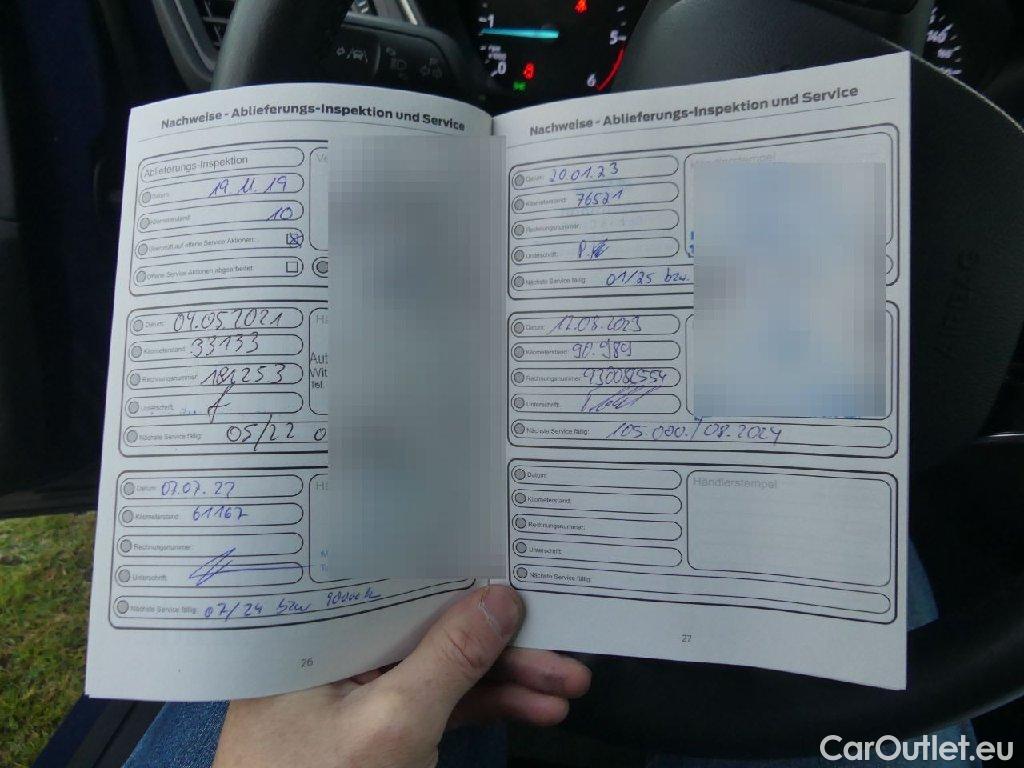 Nachweise - Ablieferungs-Inspektion und Service
Ablieferungs-Inspektion
Datum: 19.11.19
Kilometerstand: 10
Überprüft auf offene Service Aktionen:
Offene Service Aktionen abgearbeitet:
Datum: 04.05.2021
Kilometerstand: 33133
Rechnungsnummer: 181253
Unterschrift:
Nächste Service fällig: 05/22
Datum: 07.07.22
Kilometerstand: 61167
Rechnungsnummer:
Unterschrift:
Nächste Service fällig: 07/24 bzw
26
Nachweise - Ablieferungs-Inspektion und Service
Datum: 20.01.23
Kilometerstand: 76521
Rechnungsnummer:
Unterschrift:
Nächste Service fällig: 01/25 bzw.
Händlerstempel
Datum: 12.08.2023
Kilometerstand: 90.989
Rechnungsnummer: 930082554
Unterschrift:
Nächste Service fällig: 105.000./08.2024
Datum:
Kilometerstand:
Rechnungsnummer:
Unterschrift:
Nächste Service fällig:
Händlerstempel
27
CarOutlet.eu